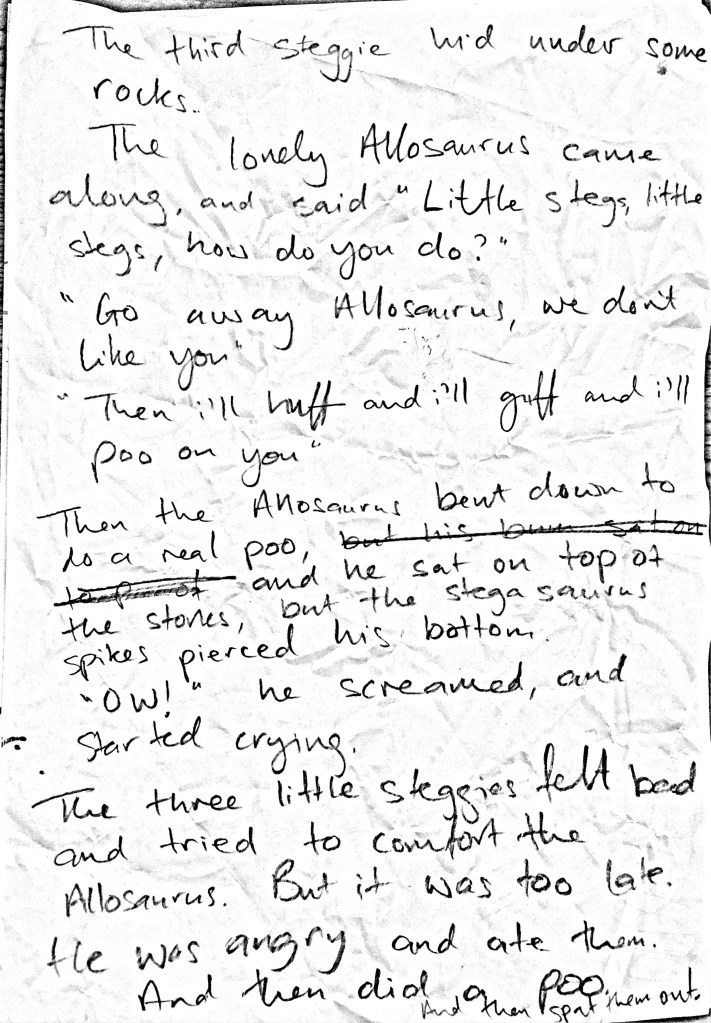 The third steggie hid under some
rocks.
The lonely Allosaurus came
along, and said "Little stegs, little
stegs, how do you do?"
"Go away Allosaurus, we don't
like you"
"Then i'll huff and i'll guff and i'll
poo on you"
Then the Allosaurus bent down to
do a real poo, but his bum sat on
to of and he sat on top of
the stones, but the stegasaurus
spikes pierced his bottom.
"OW!" he screamed, and
started crying.
The three little steggies felt bad
and tried to comfort the
Allosaurus. But it was too late.
He was angry and ate them.
And then did a poo.
And then spat them out.